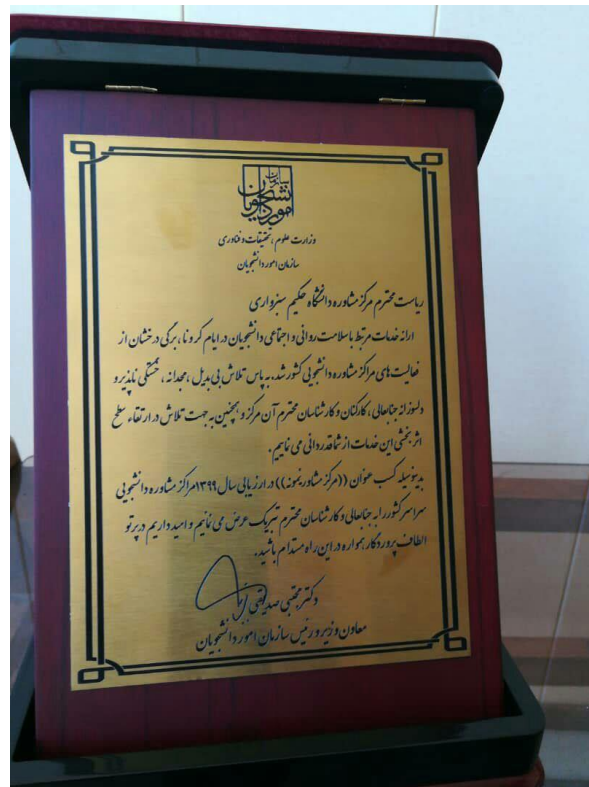 سازمان امور دانشجویان
وزارت علوم، تحقیقات و فناوری
سازمان امور دانشجویان
ریاست محترم مرکز مشاوره دانشگاه حکیم سبزواری
ارائه خدمات مرتبط با سلامت روانی و اجتماعی دانشجویان در ایام کرونا، برگی درخشان از
فعالیت های مراکز مشاوره دانشجویی کشور شد. به پاس تلاش بی بدیل، مجدانه، خستگی ناپذیر و
دلسوزانه جنابعالی، کارکنان و کارشناسان محترم آن مرکز و همچنین به جهت تلاش در ارتقاء سطح
اثربخشی این خدمات از شما قدردانی می نماییم.
بدینوسیله کسب عنوان ((مرکز مشاور نمونه)) در ارزیابی سال ۱۳۹۹ مراکز مشاوره دانشجویی
سراسر کشور را به جنابعالی و کارشناسان محترم تبریک عرض می نمایم و امید داریم در پرتو
الطاف پروردگار همواره در این راه مستدام باشید.
دکتر مجتبی صدیقی
معاون وزیر و رئیس سازمان امور دانشجویان